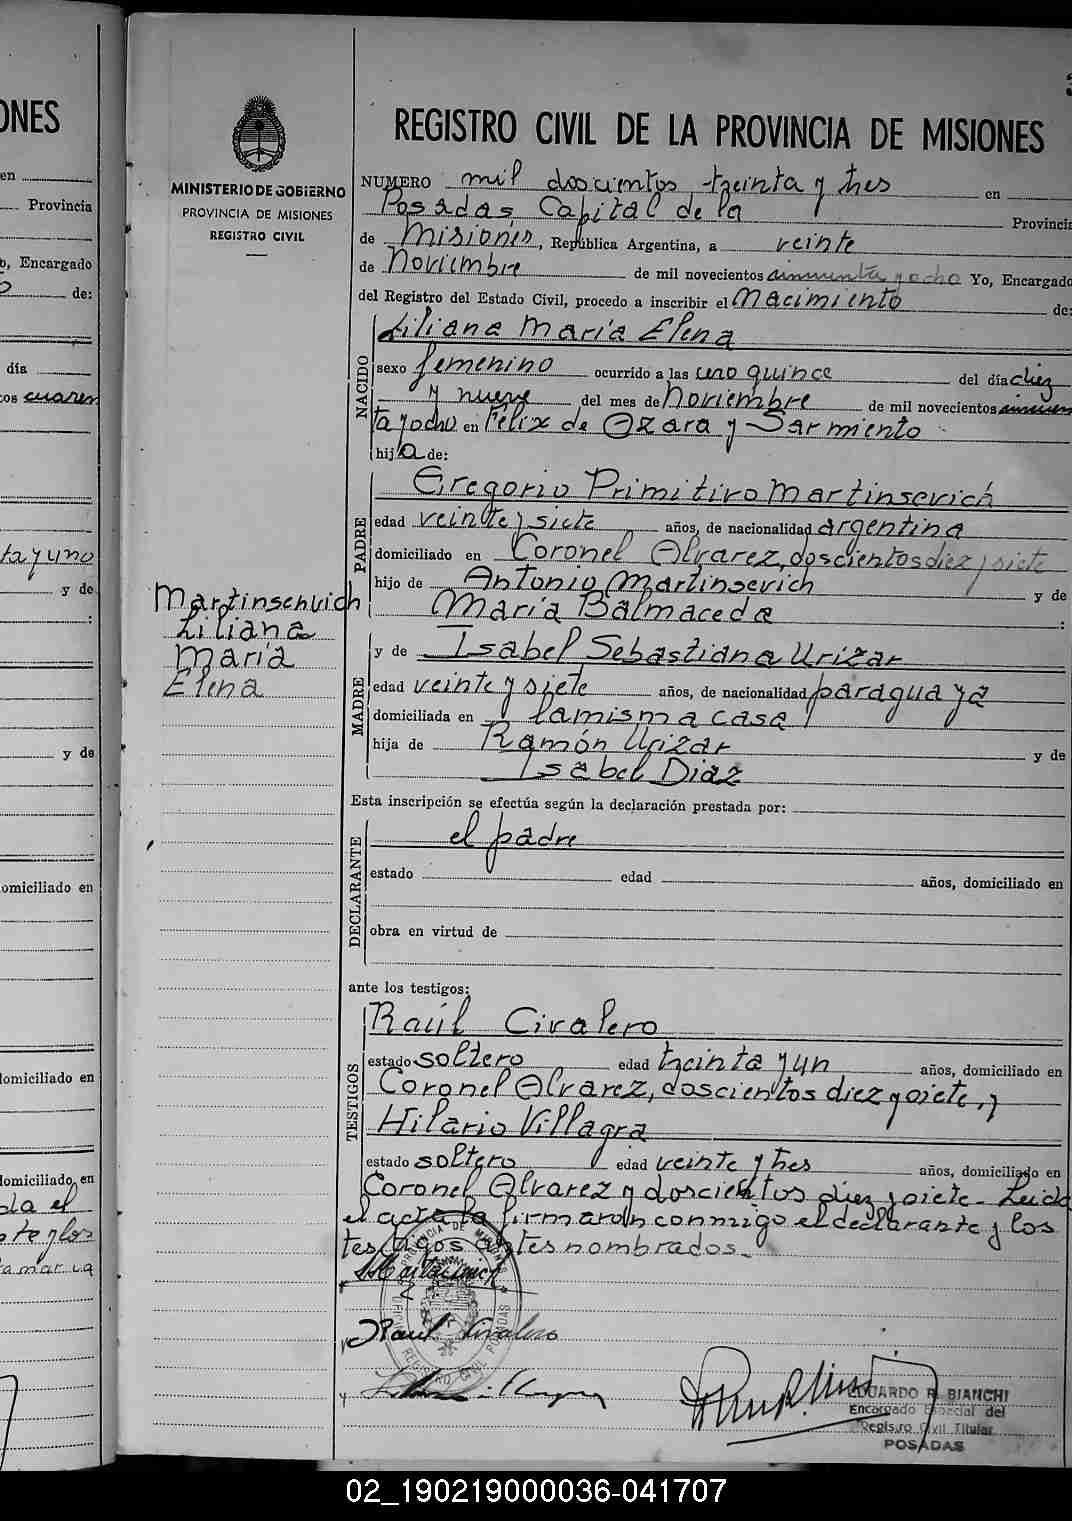 ONES
en
Provincia
o, Encargado
de:
día
cos cuaren
ta y uno
y de
:
y de
omiciliado en
domiciliado en
domiciliado en
da el
te y los
MINISTERIO DE GOBIERNO
PROVINCIA DE MISIONES
REGISTRO CIVIL
Martinschvich
Liliana
María
Elena
REGISTRO CIVIL DE LA PROVINCIA DE MISIONES
NUMERO mil doscientos treinta y tres en
Posadas, Capital de la Provincia
de Misiones, República Argentina, a veinte
de Noviembre de mil novecientos cincuenta y ocho Yo, Encargado
del Registro del Estado Civil, procedo a inscribir el Nacimiento de:
NACIDO
Liliana María Elena
sexo femenino ocurrido a las uno quince del día diez
y nueve del mes de Noviembre de mil novecientos cincuen
ta y ocho en Félix de Azara y Sarmiento
hij a de:
PADRE
Gregorio Primitivo Martinsevich
edad veinte y siete años, de nacionalidad argentina
domiciliado en Coronel Alvarez, doscientos diez y siete
hijo de Antonio Martinsevich y de
María Balmaceda :
MADRE
y de Isabel Sebastiana Urizar
edad veinte y siete años, de nacionalidad paraguaya
domiciliada en la misma casa
hija de Ramón Urizar y de
Isabel Diaz
Esta inscripción se efectúa según la declaración prestada por:
DECLARANTE
el padre
estado edad años, domiciliado en
obra en virtud de
ante los testigos:
TESTIGOS
Raúl Civalero
estado soltero edad treinta y un años, domiciliado en
Coronel Alvarez, doscientos diez y siete, y
Hilario Villagra
estado soltero edad veinte y tres años, domiciliado en
Coronel Alvarez y doscientos diez y siete- Leida
el acta la firmaron conmigo el declarante y los
testigos antes nombrados.-
PROVINCIA DE MISIONES
REGISTRO CIVIL POSADAS
Raul Civalero
EDUARDO R. BIANCHI
Encargado Especial del
Registro Civil Titular
POSADAS
02_190219000036-041707